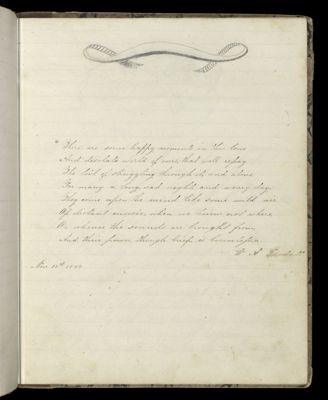 "There are some happy moments in this lone
And desolate world of ours, that well repay
The toil of struggling through it, and atone
For many a long sad night and weary day.
They come upon the mind like some wild air
Of distant music, when we know not where
Or whence the sounds are brought from,
And their power, though brief, is boundless